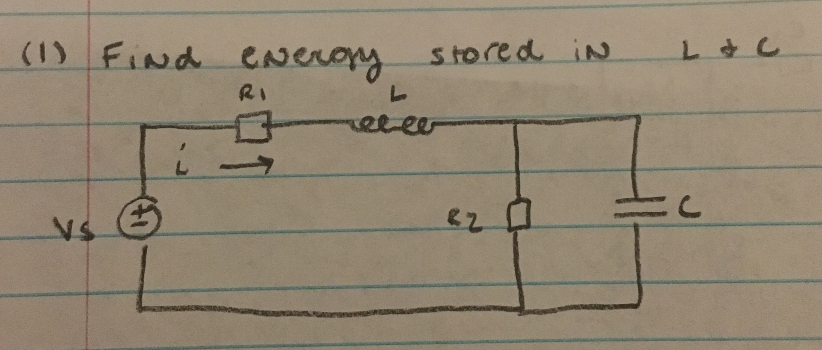 (1) Find energy stored in L & C
R1 L
i
Vs
R2
C